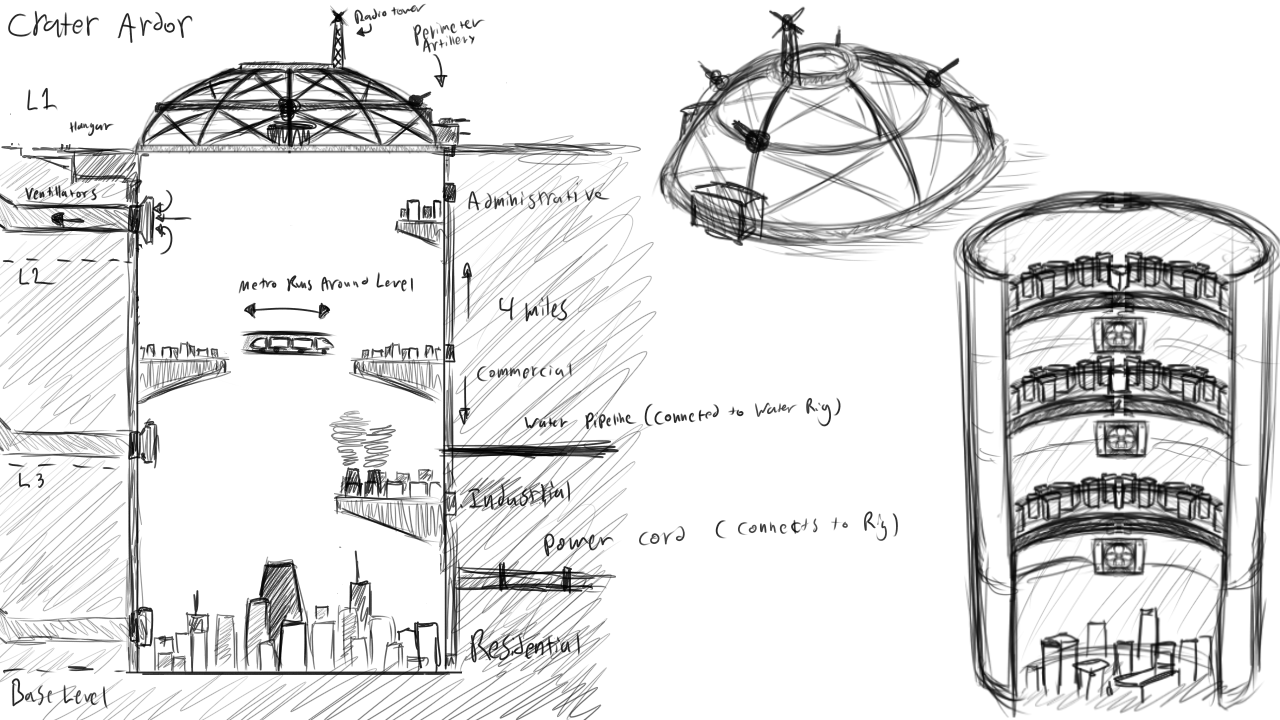 Crater Ardor
Radio tower
Perimeter
Artillery
L1
Hangar
Ventilators
Administrative
L2
Metro Runs Around Level
4 miles
Commercial
Water Pipeline (Conneted to Water Rig)
L3
Industrial
Power cord (Connects to Rig)
Residential
Base Level